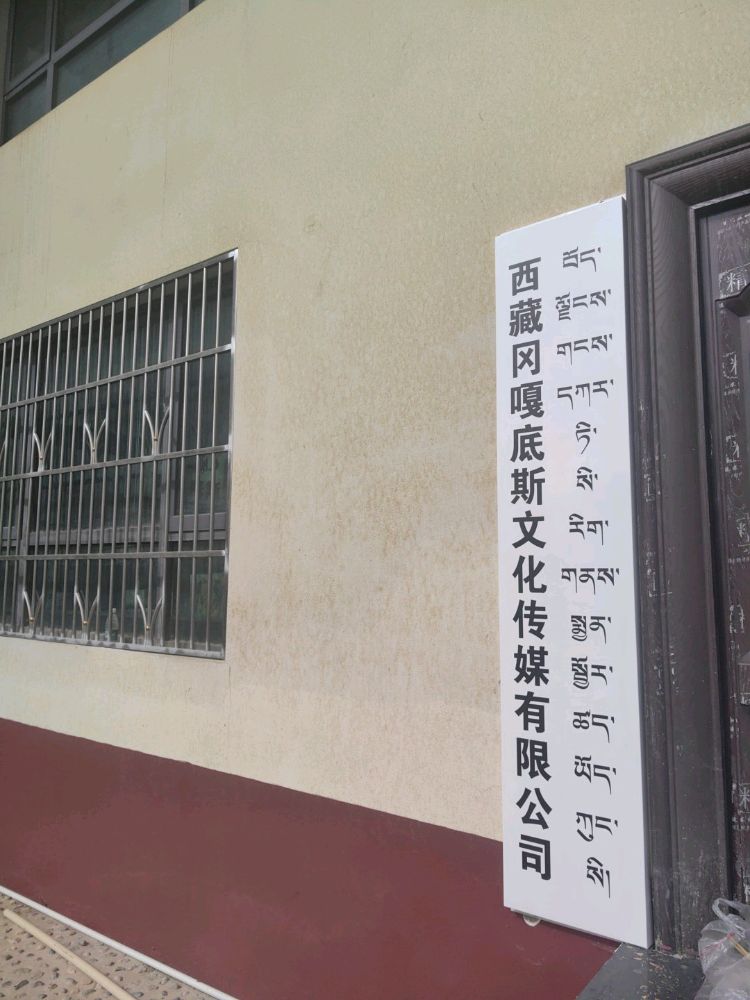 西藏冈嘎底斯文化传媒有限公司
བོད་ལྗོངས་གངས་དཀར་ཏི་སི་རིག་གནས་སྨྱན་སྦྱོར་ཚད་ཡོད་ཀུང་སི།
精